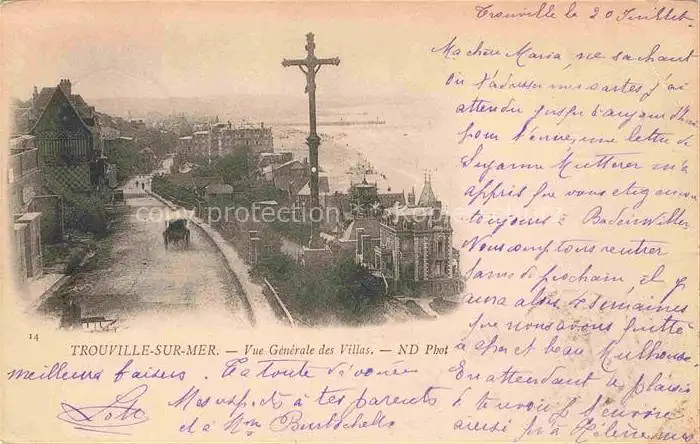 Trouville le 20 Juillet
Ma chère Maria, ne sachant
où t'adresser mes cartes j'ai
attendu jusqu'à aujourd'hui
pour t'écrire, une lettre de
Suzanne Mutterer m'a
appris que vous étiez encore
toujours à Badenweiler
Nous comptons rentrer
Samedi prochain, il y
aura alors 4 semaines
que nous avons quitté
ce cher et beau Mulhouse
En attendant le plaisir
de te revoir je t'envoie
ainsi qu'à Hélène mes
meilleurs baisers. Ta toute dévouée
Mes respects à tes parents
et à Mme
protection copyright
14
TROUVILLE-SUR-MER. — Vue Générale des Villas. — ND Phot